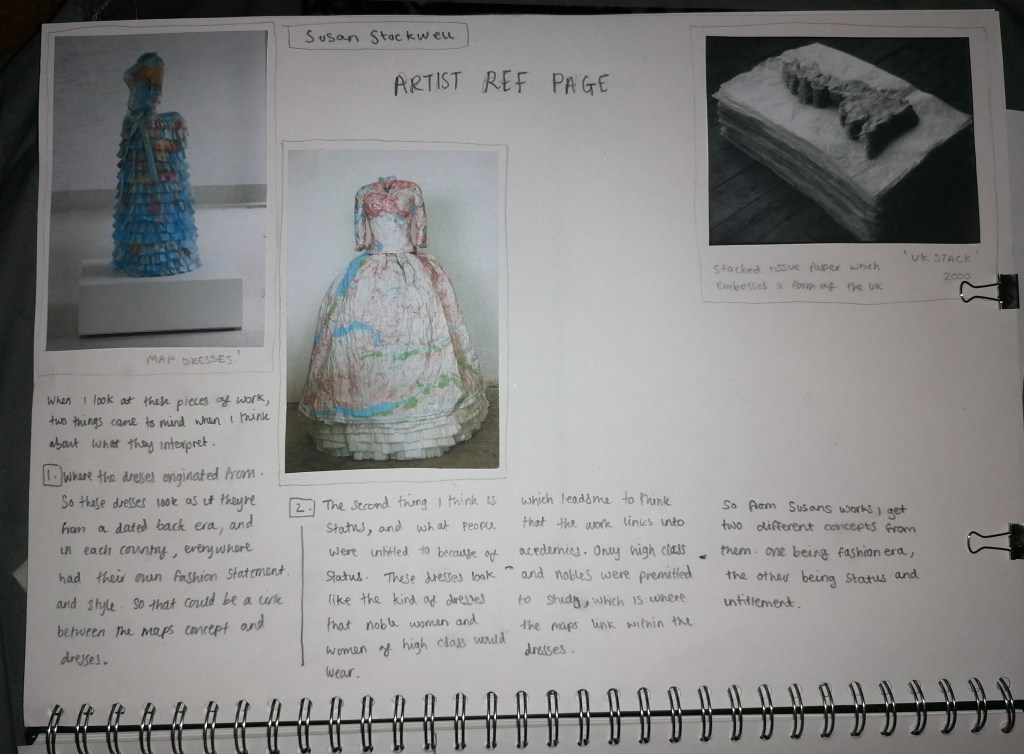 Susan Stockwell
ARTIST REF PAGE
'MAP DRESSES.'
Stacked tissue paper which
embosses a form of the UK
'UK STACK'
2000
When I look at these pieces of work,
two things came to mind when I think
about what they interpret.
1. Where the dresses originated from.
So these dresses look as if theyre
from a dated back era, and
in each country, everywhere
had their own fashion statement.
and style. So that could be a link
between the maps concept and
dresses.
2. The second thing I think is
Status, and what people
were intitled to because of
Status. These dresses look
like the kind of dresses
that noble women and
women of high class would
wear.
which leads me to think
that the work links into
acedemics. Only high class
and nobles were premitted
to study, which is where
the maps link within the
dresses.
So from Susans works, I get
two different concepts from
them. one being fashion era,
the other being status and
intitlement.